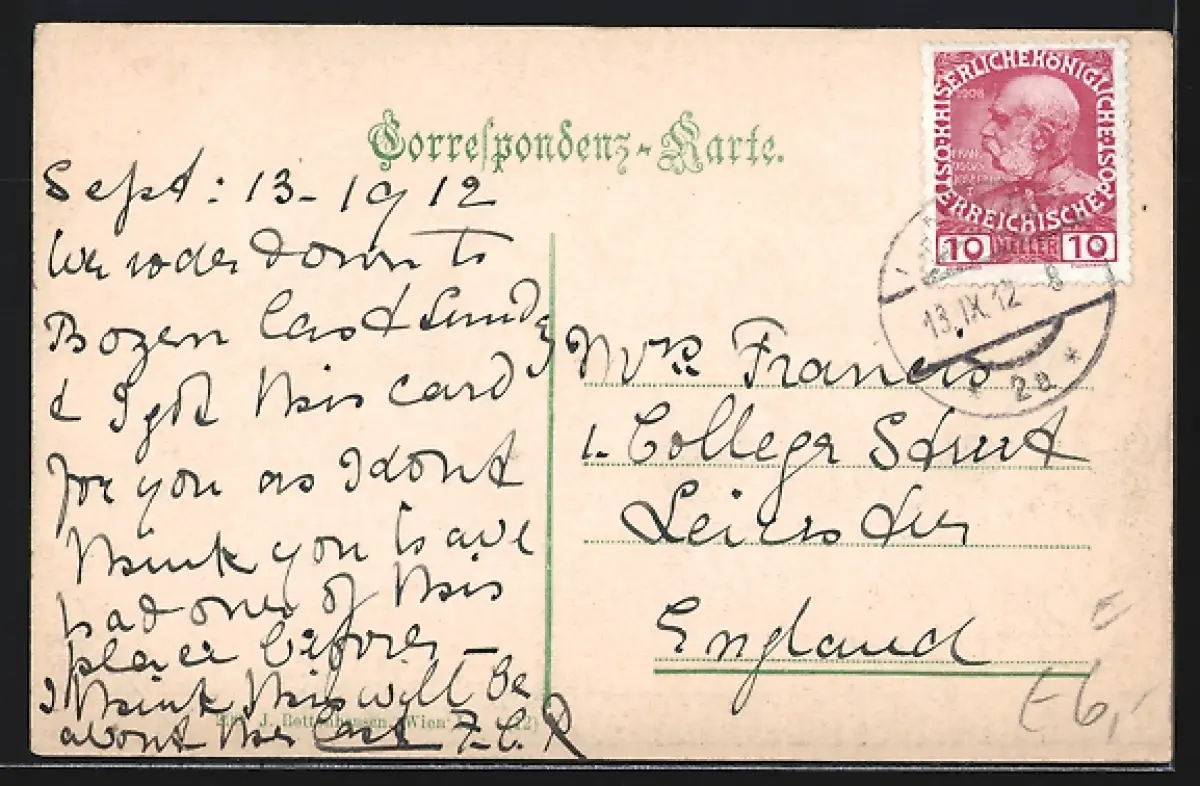 Correspondenz-Karte.
Sept: 13-1912
We rode down to
Bozen last Sundy
& I got this card
for you as I dont
think you have
had one of this
place before —
I think this will be
about the last F.C.R
J. Bettenhausen, Wien
Mrs Francis
1. College Street
Leicester
England
KAISERLICHEKÖNIGLICHE ÖSTERREICHISCHE POST
1908
10 HELLER 10
13.IX.12 8
* 2a *
E6,-